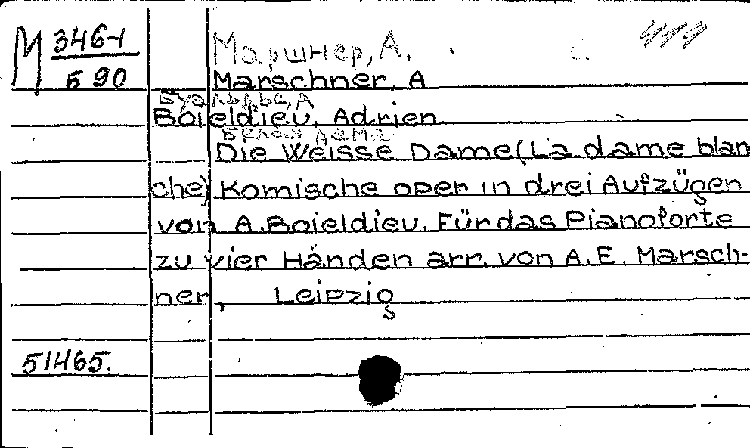 М 346-1
Б 90
Маршнер, А.
Marschner, A
Буальдье, А
Boieldieu, Adrien
Белая дама
Die Weisse Dame (La dame blan
che) Komische oper in drei Aufzügen
von A. Boieldieu. Für das Pianoforte
zu vier Händen arr. von A. E. Marsch-
ner, Leipzig
51465.